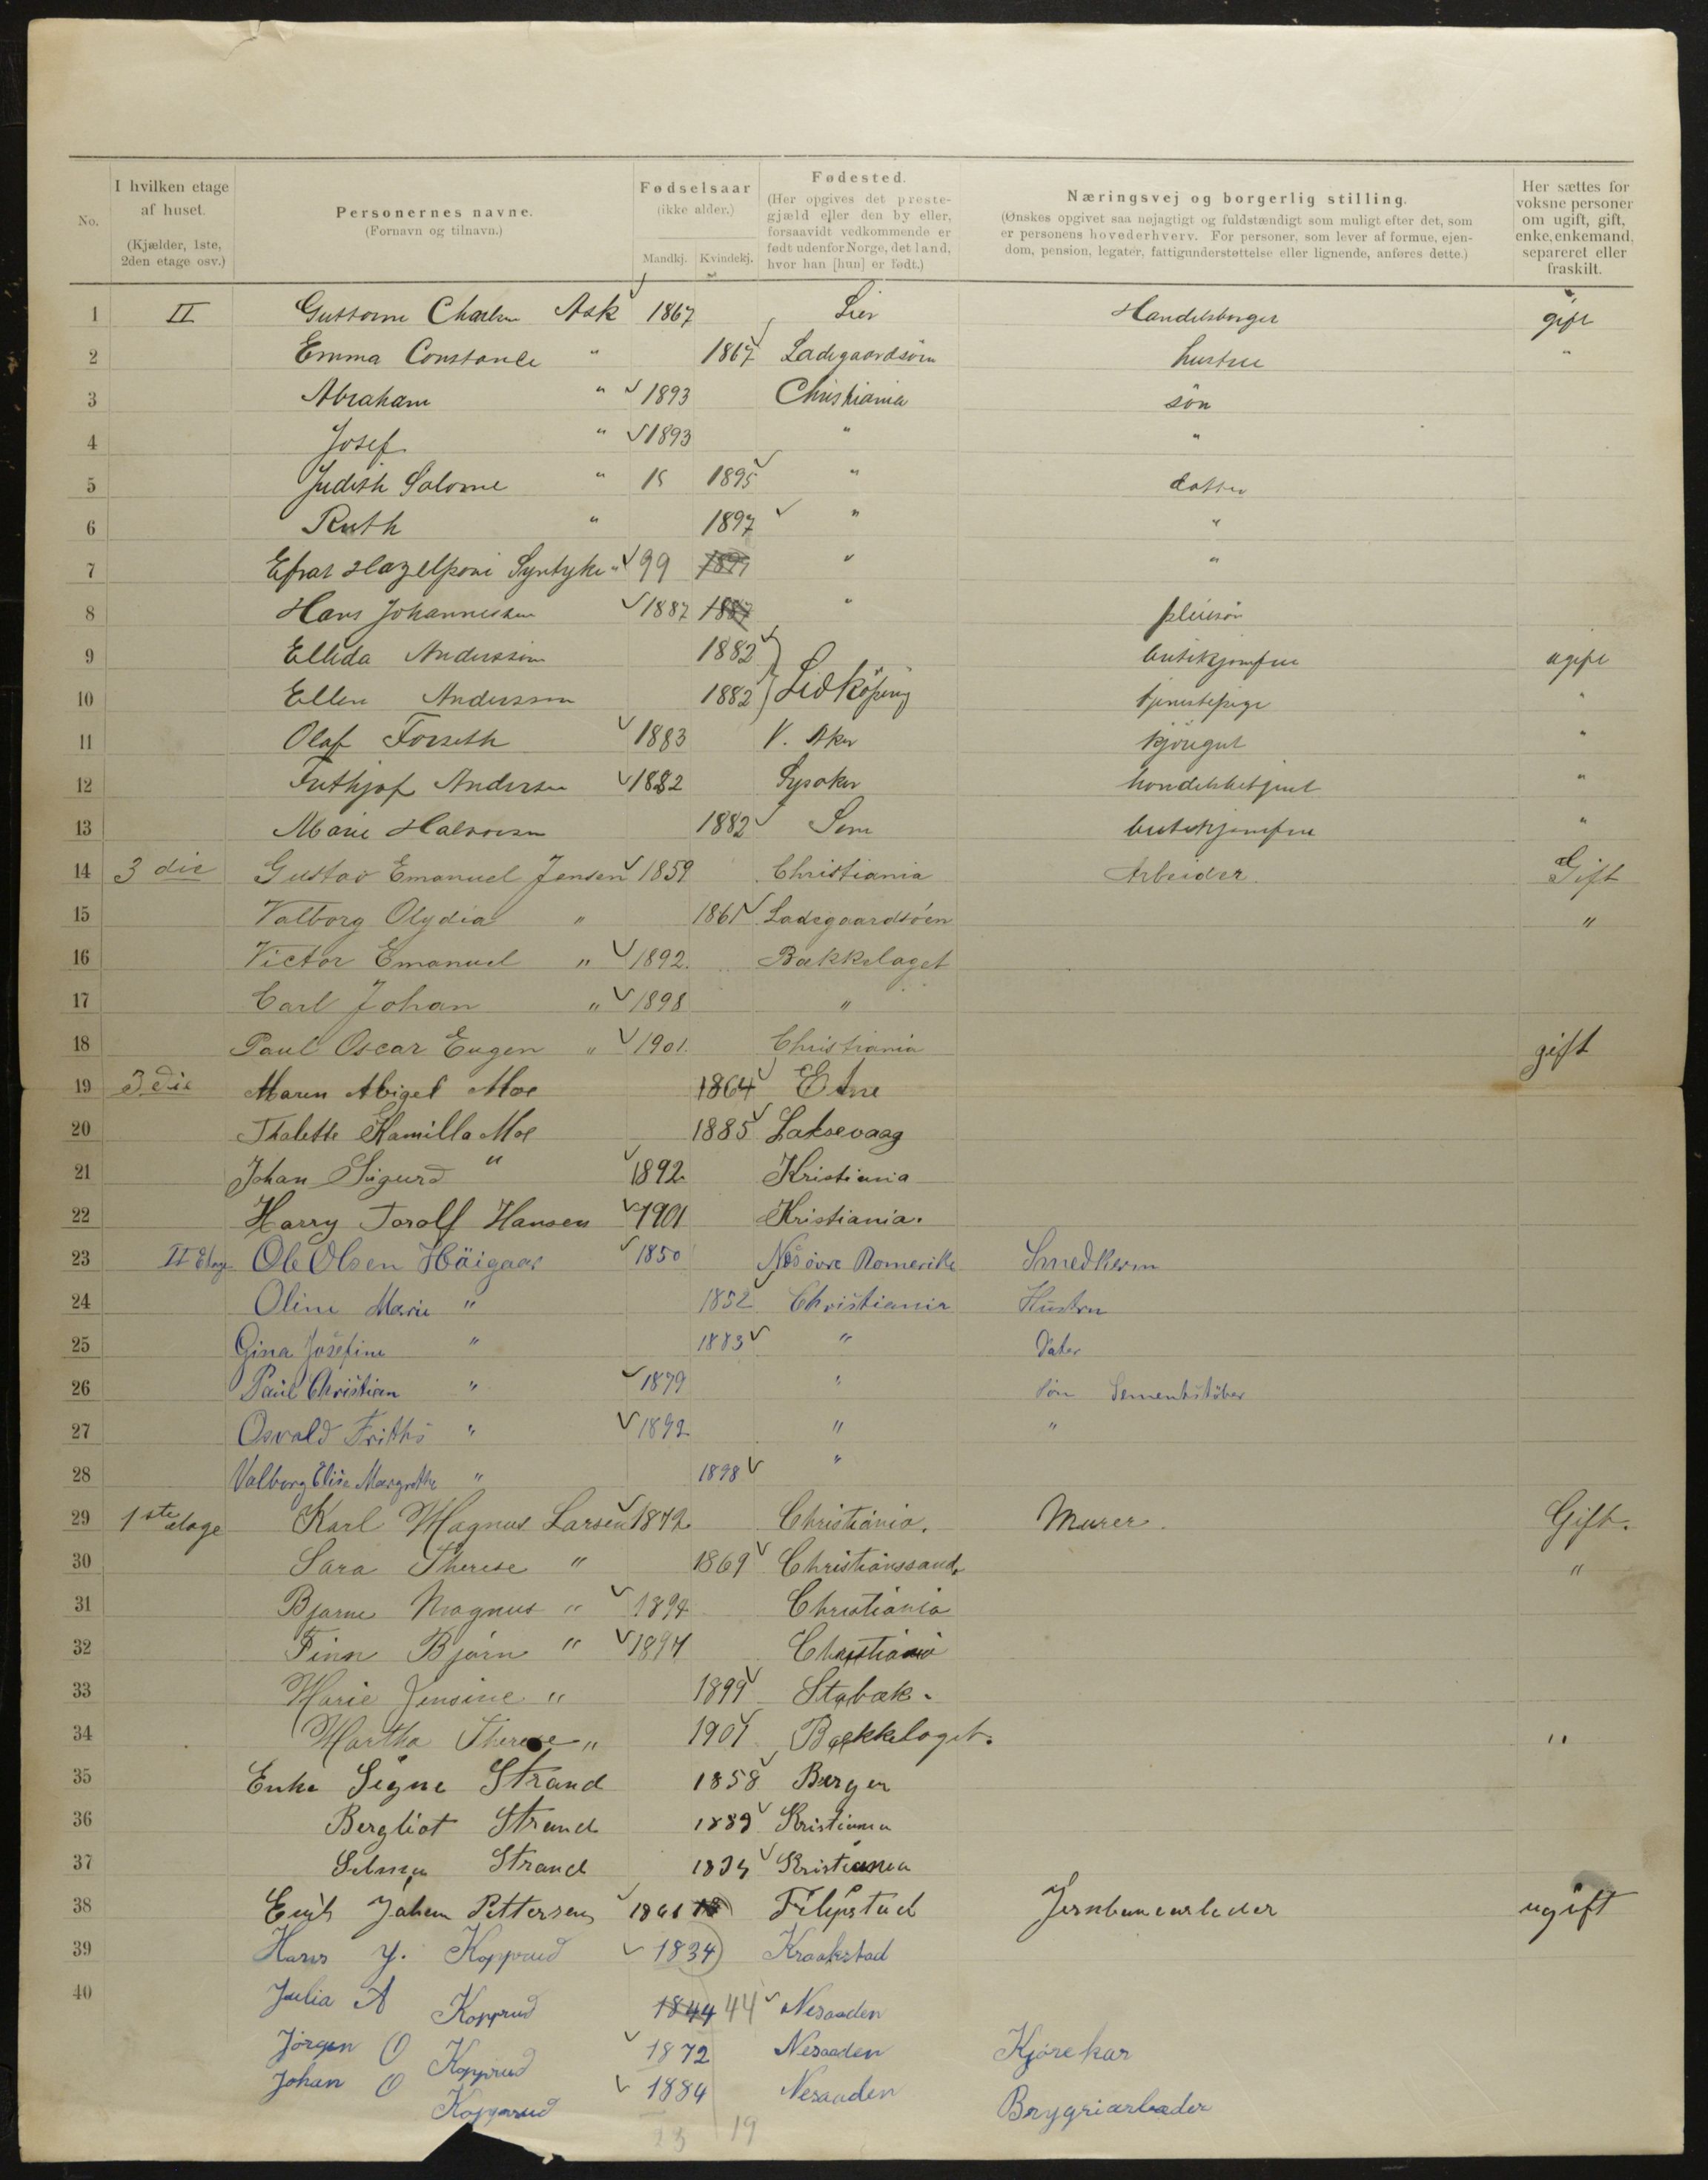 No.
I hvilken etage af huset.
(Kjælder, 1ste, 2den etage osv.)
Personernes navne.
(Fornavn og tilnavn.)
Fødselsaar
(ikke alder.)
Mandkj. Kvindekj.
Fødested.
(Her opgives det prestegjæld eller den by eller, forsaavidt vedkommende er født udenfor Norge, det land, hvor han [hun] er født.)
Næringsvej og borgerlig stilling.
(Ønskes opgivet saa nøjagtigt og fuldstændigt som muligt efter det, som er personens hovederhverv. For personer, som lever af formue, ejendom, pension, legater, fattigunderstøttelse eller lignende, anføres dette.)
Her sættes for voksne personer om ugift, gift, enke, enkemand, separeret eller fraskilt.
1 II Guttorm Charles Ask 1867 Lier Handelsborger gift
2 Emma Constance " 1867 Ladegaardsöen hustru "
3 Abraham " 1893 Christiania sön
4 Josef " 1893 " "
5 Judith Salome " 18 1895 " datter
6 Ruth " 1897 " "
7 Efrat Hazelponi Syntyke " 99 1899 " "
8 Hans Johannessen 1887 1887 " pleiesön
9 Ellida Andersson 1882 butikjomfru ugift
10 Ellen Andersson 1882 Lidköping tjenestepige "
11 Olaf Forseth 1883 V. Aker kjöregut "
12 Frithjof Andersen 1882 Lysaker handelsbetjent "
13 Marie Halvorsen 1882 Sem butikjomfru "
14 3 die Gustav Emanuel Jensen 1859 Christiania Arbeider Gift
15 Valborg Olydia " 1861 Ladegaardsöen "
16 Victor Emanuel " 1892. Bækkelaget
17 Carl Johan " 1898 "
18 Paul Oscar Eugen " 1901. Christiania gift
19 3 die Maren Abigel Moe 1864 Etne
20 Thalette Kamilla Moe 1885 Laksevaag
21 Johan Sigurd " 1892 Kristiania
22 Harry Torolf Hansen 1901 Kristiania.
23 II Etage Ole Olsen Häigaar 1850 Nes övre Romerike Smedkerm
24 Oline Marie " 1852 Christiania Hustru
25 Gina Josefine " 1883 " Dater
26 Paul Christian " 1879 " Sön Sementstöber
27 Osvald Friths " 1892 " "
28 Valborg Elise Margrethe " 1898 "
29 1ste etage Karl Magnus Larsen 1872 Christiania. Murer. Gift.
30 Sara Therese " 1869 Christianssand. "
31 Bjarne Magnus " 1894 Christiania
32 Finn Bjørn " 1897 Christiania
33 Marie Jensine " 1899 Stabæk.
34 Martha Therese " 1901 Bækkelaget. "
35 Enke Signe Strand 1858 Bergen
36 Bergliot Strand 1889 Kristiania
37 Selma Strand 1894 Kristiania
38 Erik Johan Pettersen 1861 18 Filipstad Jernbanearbeder ugift
39 Hans J. Kopprud 1834 Kraakstad
40 Julia A Kopprud 1844 44 Nesodden
Jörgen O Kopprud 1872 Nesodden Kjørekar
Johan O Kopprud 1884 Nesodden Brygriarbeder
23 19